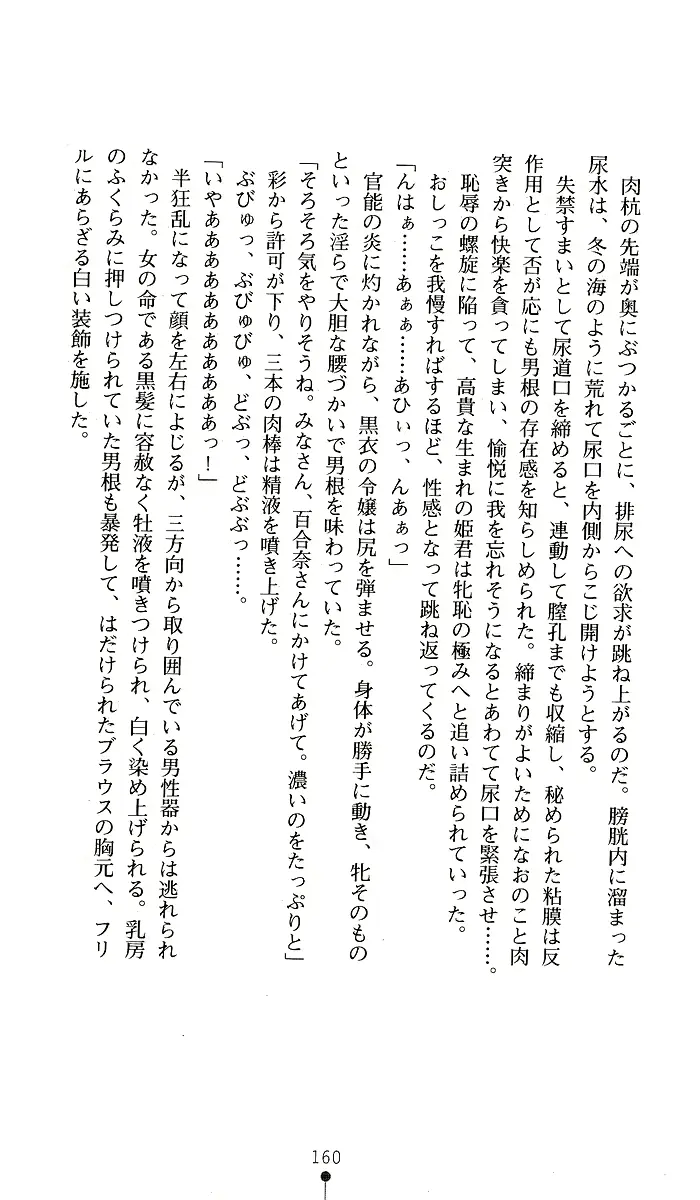 肉杭の先端が奥にぶつかるごとに、排尿への欲求が跳ね上がるのだ。膀胱内に溜まった
尿水は、冬の海のように荒れて尿口を内側からこじ開けようとする。
失禁すまいとして尿道口を締めると、連動して膣孔までも収縮し、秘められた粘膜は反
作用として否が応にも男根の存在感を知らしめられた。締まりがよいためになおのこと肉
突きから快楽を貪ってしまい、愉悦に我を忘れそうになるとあわてて尿口を緊張させ……。
恥辱の螺旋に陥って、高貴な生まれの姫君は牝恥の極みへと追い詰められていった。
おしっこを我慢すればするほど、性感となって跳ね返ってくるのだ。
「んはぁ……あぁぁ……あひぃっ、んあぁっ」
官能の炎に灼かれながら、黒衣の令嬢は尻を弾ませる。身体が勝手に動き、牝そのもの
といった淫らで大胆な腰づかいで男根を味わっていた。
「そろそろ気をやりそうね。みなさん、百合奈さんにかけてあげて。濃いのをたっぷりと」
彩から許可が下り、三本の肉棒は精液を噴き上げた。
ぶびゅっ、ぶびゅびゅ、どぶっ、どぶぶっ……。
「いやぁああああああああああああっ！」
半狂乱になって顔を左右によじるが、三方向から取り囲んでいる男性器からは逃れられ
なかった。女の命である黒髪に容赦なく牡液を噴きつけられ、白く染め上げられる。乳房
のふくらみに押しつけられていた男根も暴発して、はだけられたブラウスの胸元へ、フリ
ルにあらざる白い装飾を施した。
160